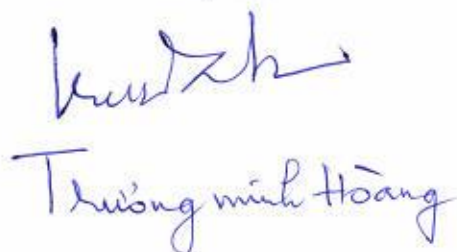 Trương minh Hoàng